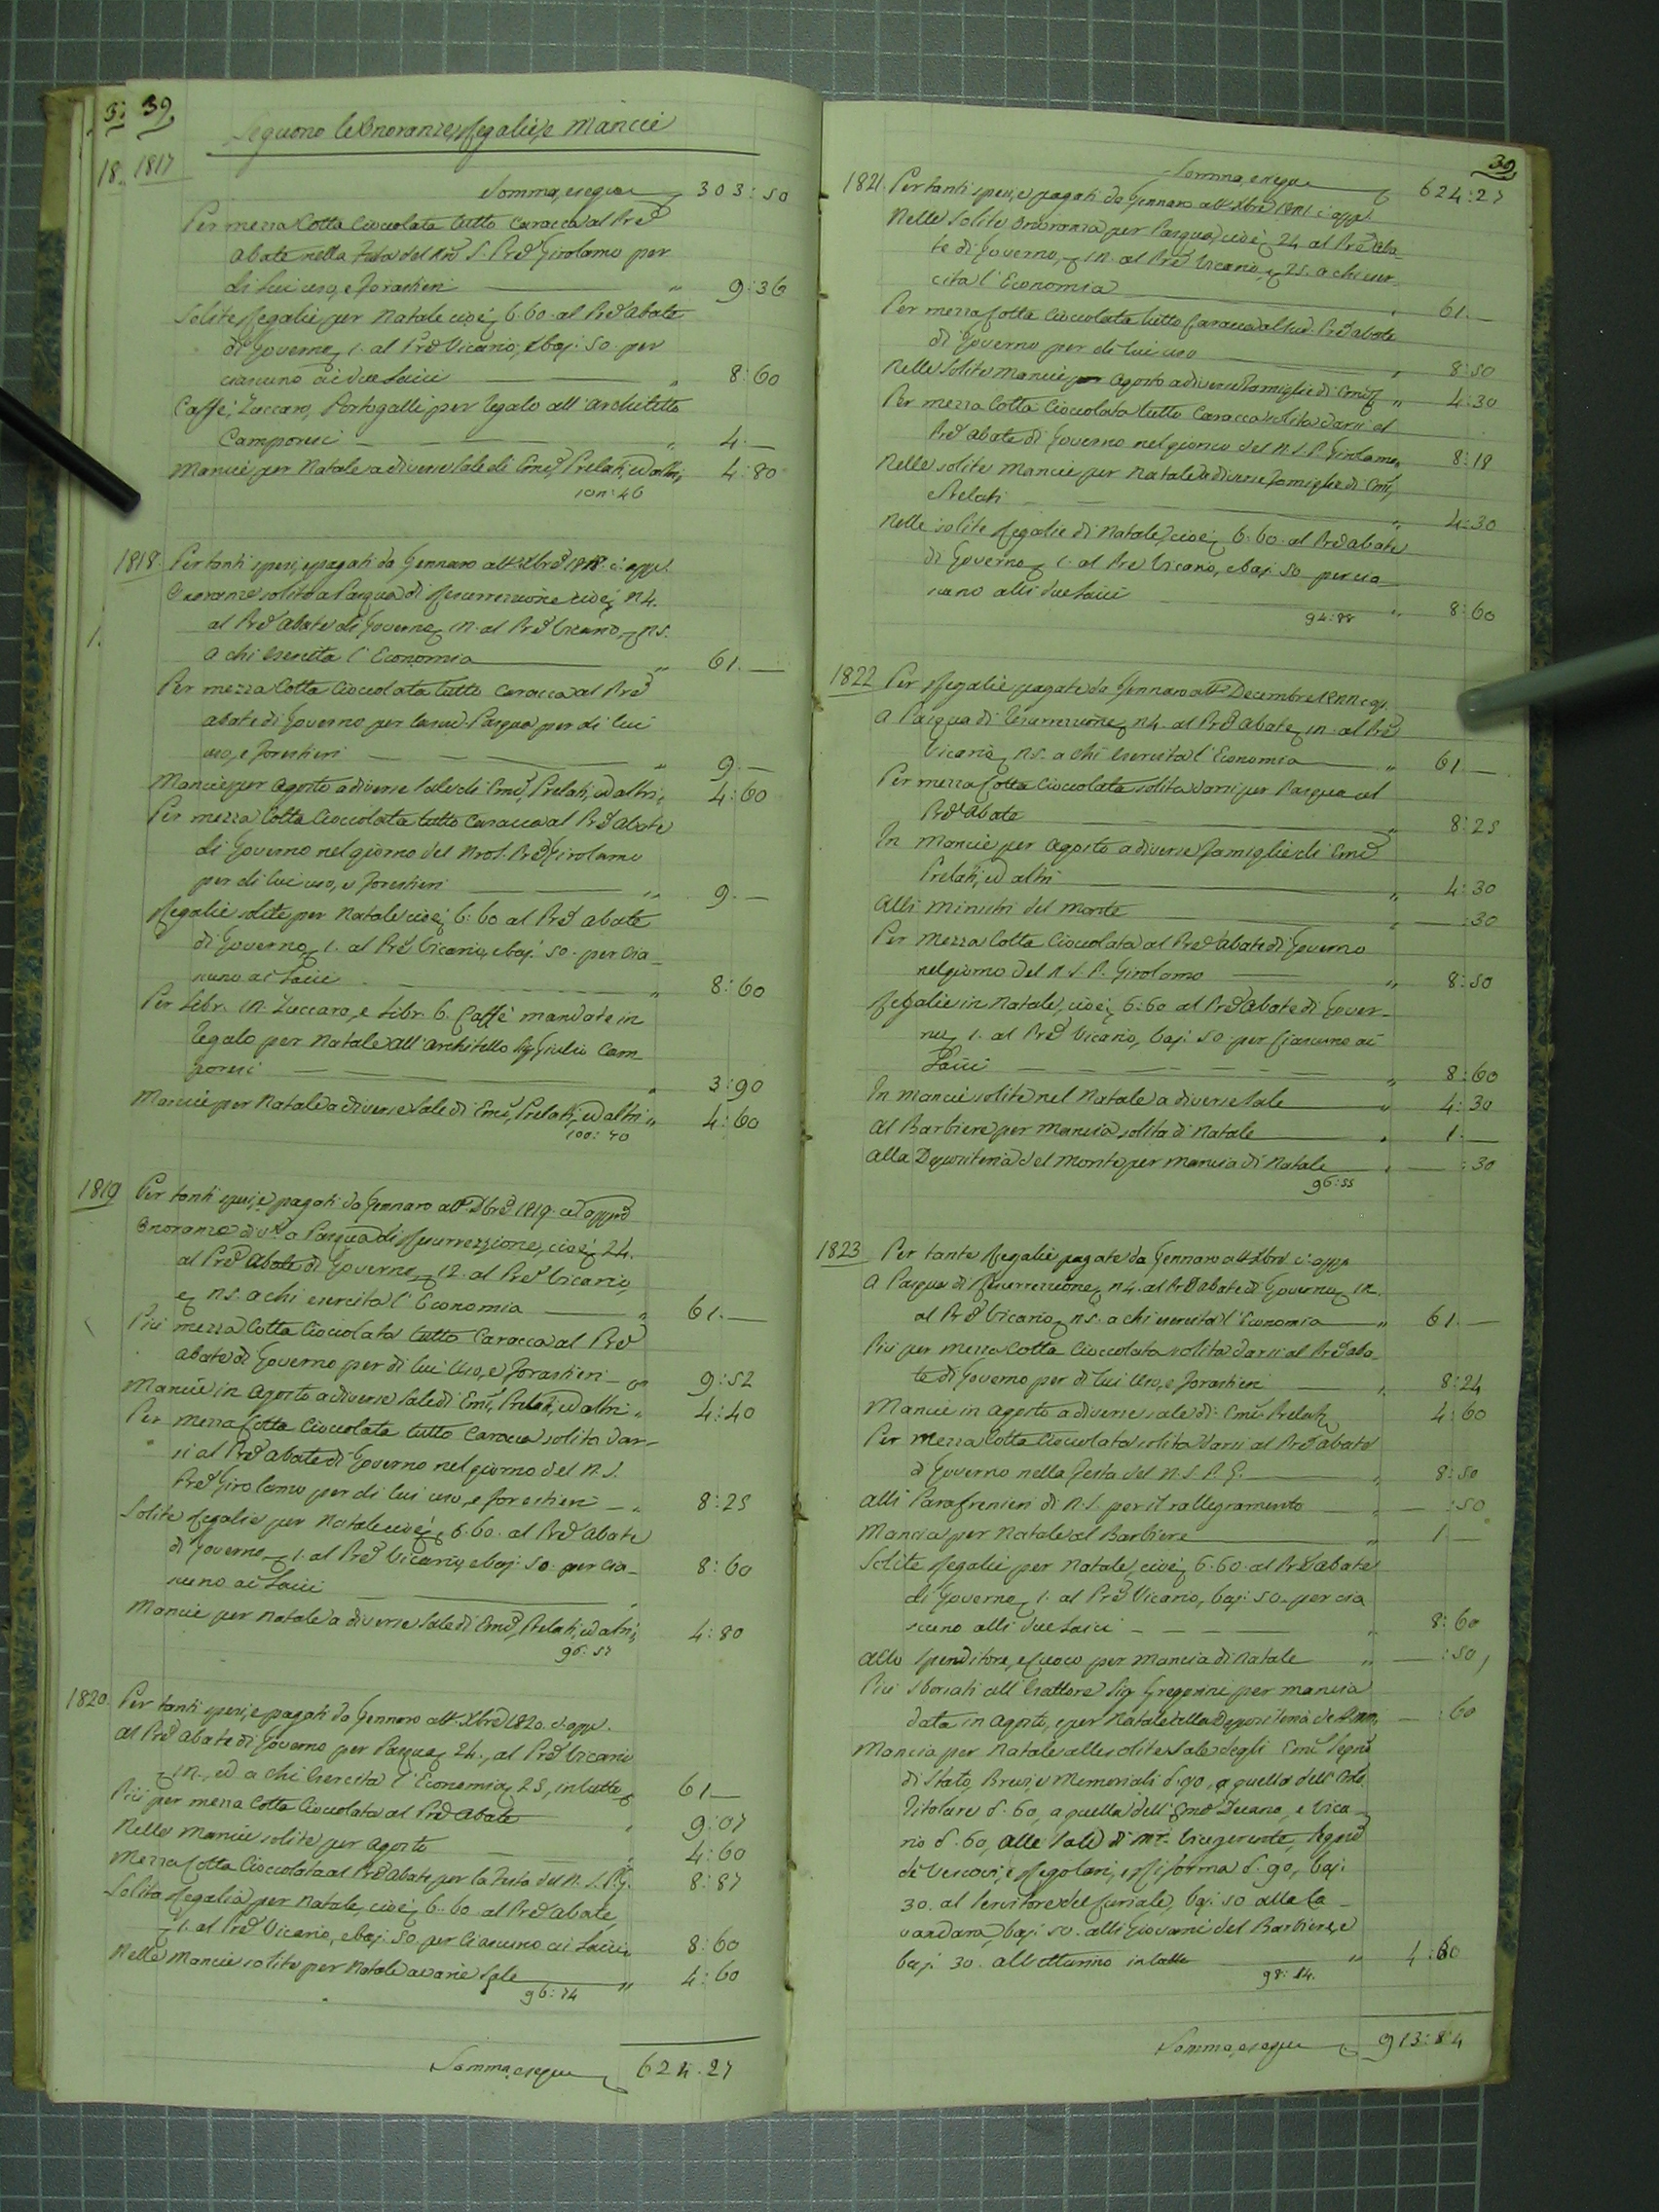 39
1817
Seguono le Onoranze, Regalie, e Mancie
Somma, e segue 303:50
Per mezza Cotta Cioccolata tutto Caracca al Prẽ
Abate nella Festa del Nrõ S. Prẽ Girolamo per
di lui uso, e Forastieri " 9:36
Solite Regalie per Natale cioè 6:60 al Prẽ Abate
di Governo, 1. al Prẽ Vicario, e baj: 50. per
ciascuno ai due Laici " 8:60
Caffè, Zuccaro, Portogalli per regalo all'Architetto
Camporesi " 4.—
Mancie per Natale a diverse Sale di Emi, Prelati, ed altri, 4:80
1818. Per tanti spesi, e pagati da Gennaro a tt.o Xbrẽ 1818. c: app.
Onoranze solite a Pasqua di Resurrezzione cioè 24.
al Prẽ Abate di Governo, 12. al Prẽ Vicario, 25.
a chi esercita l'Economia " 61.—
Per mezza Cotta Cioccolata tutto Caracca al Prẽ
Abate di Governo per la sud. Pasqua per di lui
uso, e forestieri " 9.—
Mancie per Agosto a diverse Sale di Emi, Prelati, ed altri, 4:60
Per mezza Cotta Cioccolata tutto Caracca al Prẽ Abate
di Governo nel giorno del Nro S. Prẽ Girolamo
per di lui uso, e forestieri " 9.—
Regalie solite per Natale cioè 6:60 al Prẽ Abate
di Governo, 1. al Prẽ Vicario, e baj: 50. per cia-
scuno ai Laici " 8:60
Per Libr. 12. Zuccaro, e Libr. 6. Caffè mandate in
regalo per Natale all'Architetto Sig Giulio Cam-
poresi " 3:90
Mancie per Natale a diverse Sale di Emi, Prelati, ed altri " 4:60
100:70
1819 Per tanti spesi, e pagati da Gennaro a tt.o Xbrẽ 1819. ced app.
Onoranze a Pasqua di Resurrezzione, cioè 24.
al Prẽ Abate di Governo, 12. al Prẽ Vicario,
e 25. a chi esercita l'Economia " 61.—
Più mezza Cotta Cioccolata tutto Caracca al Prẽ
Abate di Governo per di lui Uso, e Forastieri 9:52
Mancie in Agosto a diverse Sale di Emi, Prelati, ed altri " 4:40
Per mezza Cotta Cioccolata tutto Caracca solita dar-
si al Prẽ Abate di Governo nel giorno del N. S.
Prẽ Girolamo per di lui uso, e forestieri " 8:25
Solite Regalie per Natale cioè 6:60. al Prẽ Abate
di Governo, 1. al Prẽ Vicario, e baj: 50. per cia-
scuno ai Laici 8:60
Mancie per Natale a diverse Sale di Emi, Prelati, ed altri, 4:80
96:57
1820. Per tanti spesi, e pagati da Gennaro a tt.o Xbrẽ 1820. c: app.
al Prẽ Abate di Governo per Pasqua 24., al Prẽ Vicario
12., ed a chi Esercita l'Economia 25, in tutto 61.—
Più per mezza Cotta Cioccolata al Prẽ Abate " 9:07
Nelle Mancie solite per Agosto " 4:60
Mezza Cotta Cioccolata al Prẽ Abate per la Festa del N. S. P. G. 8:87
Solita Regalia per Natale, cioè 6:60 al Prẽ Abate,
1. al Prẽ Vicario, e baj: 50. per Ciascuno ai Laici " 8:60
Nelle Mancie solite per Natale a varie Sale " 4:60
96:74
Somma, e segue 624.27
39
Somma, e segue 624:27
1821. Per tanti spesi, e pagati da Gennaro a tt.o Xbrẽ 1821 c: app.
Nelle Solite Onoranza per Pasqua, cioè 24 al Prẽ Aba-
te di Governo, 12. al Prẽ Vicario, 25. a chi eser-
cita l'Economia " 61.—
Per mezza Cotta Cioccolata tutto Caracca al sud. Prẽ Abate
di Governo per di lui uso " 8:50
Nelle Solite Mancie per Agosto a diverse Famiglie di Emi " 4:30
Per mezza Cotta Cioccolata tutto Caracca solita darsi al
Prẽ Abate di Governo nel giorno del N. S. P. Girolamo 8:18
Nelle solite Mancie per Natale a diverse famiglie di Emi,
e Prelati " 4:30
Nelle solite Regalie di Natale, cioè 6:60. al Prẽ Abate
di Governo, 1. al Prẽ Vicario, e baj: 50 per cia-
scuno alli due Laici " 8:60
94:88
1822 Per Regalie pagate da Gennaro a tt.o Decembre 1822 c: ap.
A Pasqua di Resurrezzione 24. al Prẽ Abate, 12. al Prẽ
Vicario, 25. a chi esercita l'Economia " 61.—
Per mezza Cotta Cioccolata solita darsi per Pasqua al
Prẽ Abate " 8:25
In Mancie per Agosto a diverse famiglie di Emi
Prelati, ed altri " 4:30
Alli Ministri del Monte " —:30
Per Mezza Cotta Cioccolata al Prẽ Abate di Governo
nel giorno del N. S. P. Girolamo " 8:50
Regalie in Natale, cioè 6:60 al Prẽ Abate di Gover-
no, 1. al Prẽ Vicario, baj: 50 per Ciascuno ai
Laici " 8:60
In Mancie solite nel Natale a diverse Sale " 4:30
Al Barbiere per Mancia solita di Natale " 1.—
Alla Depositeria del Monte per Mancia di Natale " —:30
96:55
1823 Per tante Regalie pagate da Gennaro a tt.o Xbrẽ c: app.
A Pasqua di Resurrezzione, 24. al Prẽ Abate di Governo, 12.
al Prẽ Vicario, 25. a chi esercita l'Economia " 61.—
Più per Mezza Cotta Cioccolata solita darsi al Prẽ Aba-
te di Governo per di lui Uso, e Forastieri " 8:24
Mancie in Agosto a diverse Sale di Emi Prelati 4:60
Per Mezza Cotta Cioccolata solita darsi al Prẽ Abate
di Governo nella Festa del N. S. P. G. " 8:50
Alli Parafrenieri di N. S. per il rallegramento " —:50
Mancia per Natale al Barbiere " 1.—
Solite Regalie per Natale, cioè 6:60. al Prẽ Abate
di Governo, 1. al Prẽ Vicario, baj: 50. per cia
scuno alli due Laici " 8:60
Allo Spenditore, e Cuoco per Mancia di Natale " —:50
Più sborsati all'Esattore Sig Gregorini per mancia
data in Agosto, e per Natale alla Depositeria —:60
Mancia per Natale alle solite Sale degli Emi Segrio
di Stato, Brevi e Memoriali d. 90, a quella dell'
Titolare d. 60, a quella dell'Emo Decano, e Vica-
rio d. 60, alle Sale di Mr. Vicegerente, Segrio
de Vescovi, e Regolari, e Riforma d. 90, baj:
30. al Servitore del Curiale, baj: 50 alla la-
vandara, baj: 50. alli Giovani del Barbiere, e
baj: 30. in tutto " 4:60
98:14.
Somma, e segue 913:84